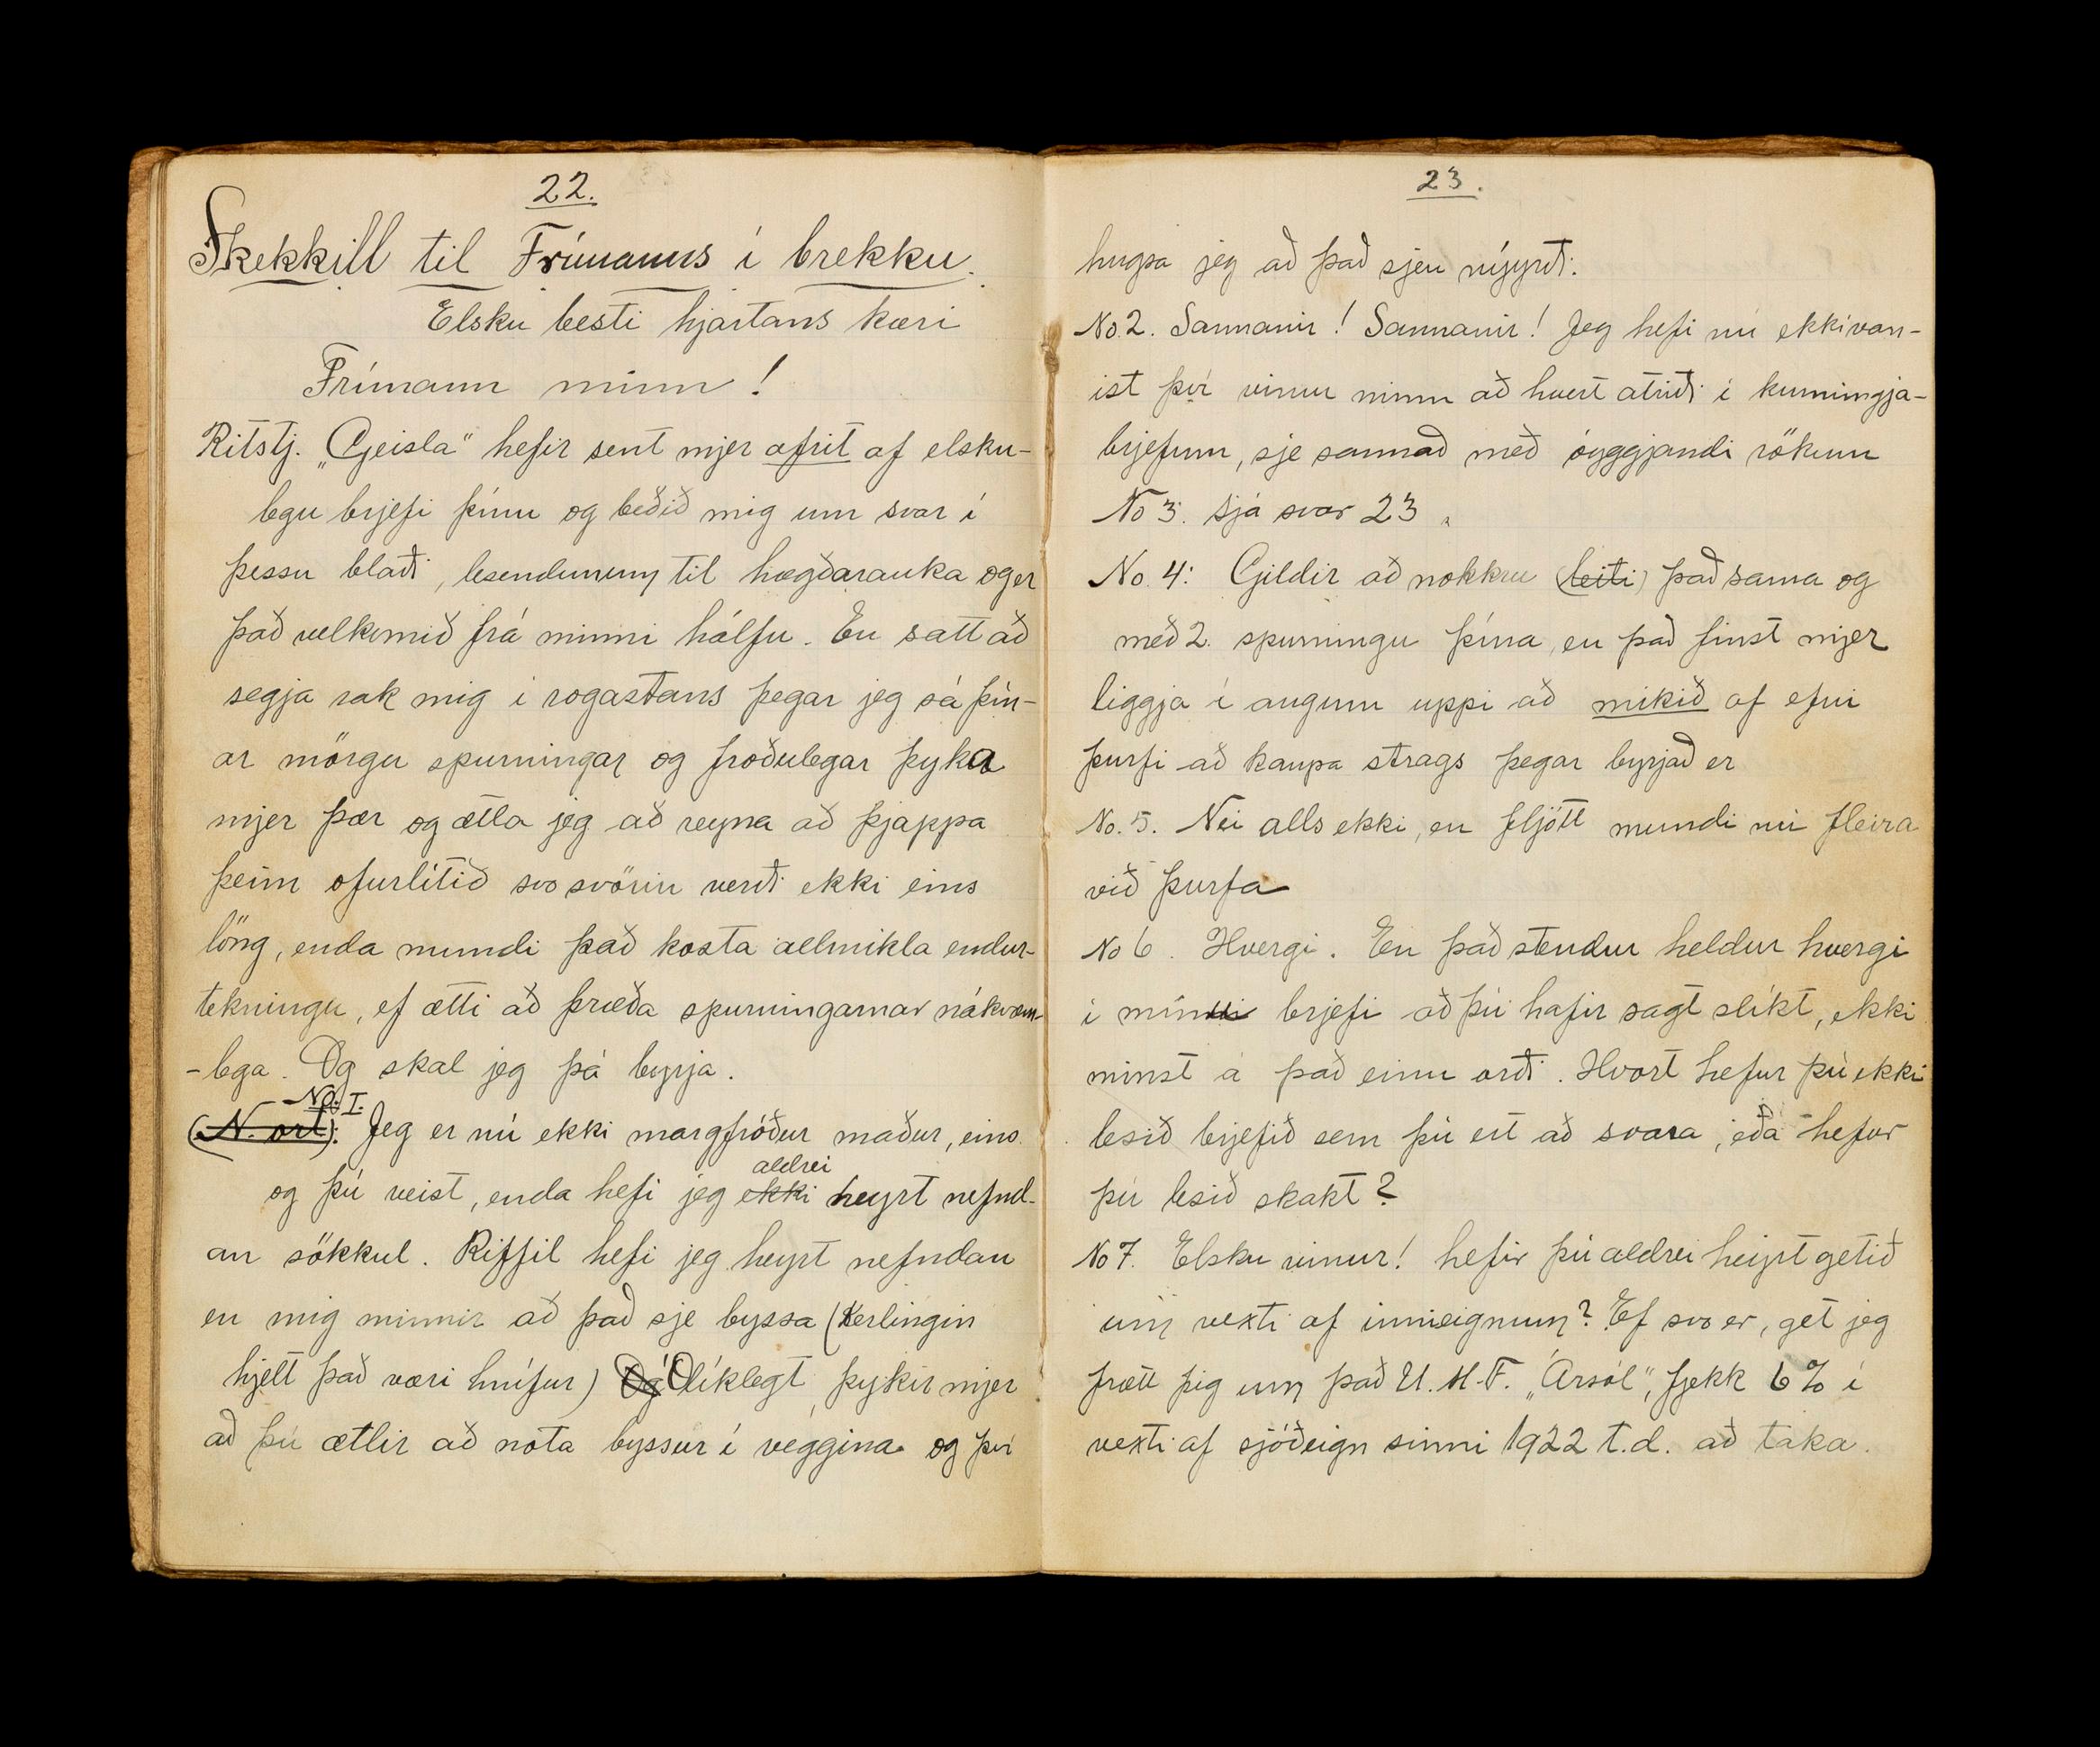 22.
Skekkill til Frímanns í brekku.
Elsku besti hjartans kæri
Frímann minn!
Ritstj. „Geisla" hefir sent mjer afrit af elsku-
legu brjefi þínu og beðið mig um svar í
þessu blaði, lesendunum til hægðarauka og er
það velkomið frá minni hálfu. En satt að
segja rak mig í rogastans þegar jeg sá þín-
ar mörgu spurningar og froðulegar þyka
mjer þær og ætla jeg að reyna að þjappa
þeim ofurlítið svo svörin verði ekki eins
löng, enda mundi það kosta allmikla endur-
tekningu, ef ætti að þræða spurningarnar nákvæm-
-lega. Og skal jeg þá byrja.
No. I.
(N. ort): Jeg er nú ekki margfróður maður, eins
aldrei
og þú veist, enda hefi jeg ekki heyrt nefnd-
an sökkul. Riffil hefi jeg heyrt nefndan
en mig minnir að það sje byssa (Kerlingin
hjelt það væri hnífur) Og Ólíklegt þykir mjer
að þú ætlir að nota byssur í veggina og því
23.
hugsa jeg að það sjeu nýyrði.
No 2. Sannanir! Sannanir! Jeg hefi nú ekki van-
ist því vinur minn að hvert atriði í kunningja-
brjefum, sje sannað með óyggjandi rökum
No 3. sjá svar 23.
No. 4: Gildir að nokkru (leiti) það sama og
með 2. spurningu þína, en það finst mjer
liggja í augum uppi að mikið af efni
þurfi að kaupa strags þegar byrjað er
No. 5. Nei alls ekki, en fljótt mundi nú fleira
við þurfa
No 6. Hvergi. En það stendur heldur hvergi
í mínu brjefi að þú hafir sagt slíkt, ekki
minst á það einu orði. Hvort hefur þú ekki
lesið brjefið sem þú ert að svara, eða hefur
þú lesið skakt?
No 7. Elsku vinur! hefir þú aldrei heiyrt getið
um vexti af innieignum? Ef svo er, get jeg
frætt þig um það U. M. F. „Ársól", fjekk 6% í
vexti af sjóðeign sinni 1922 t.d. að taka.